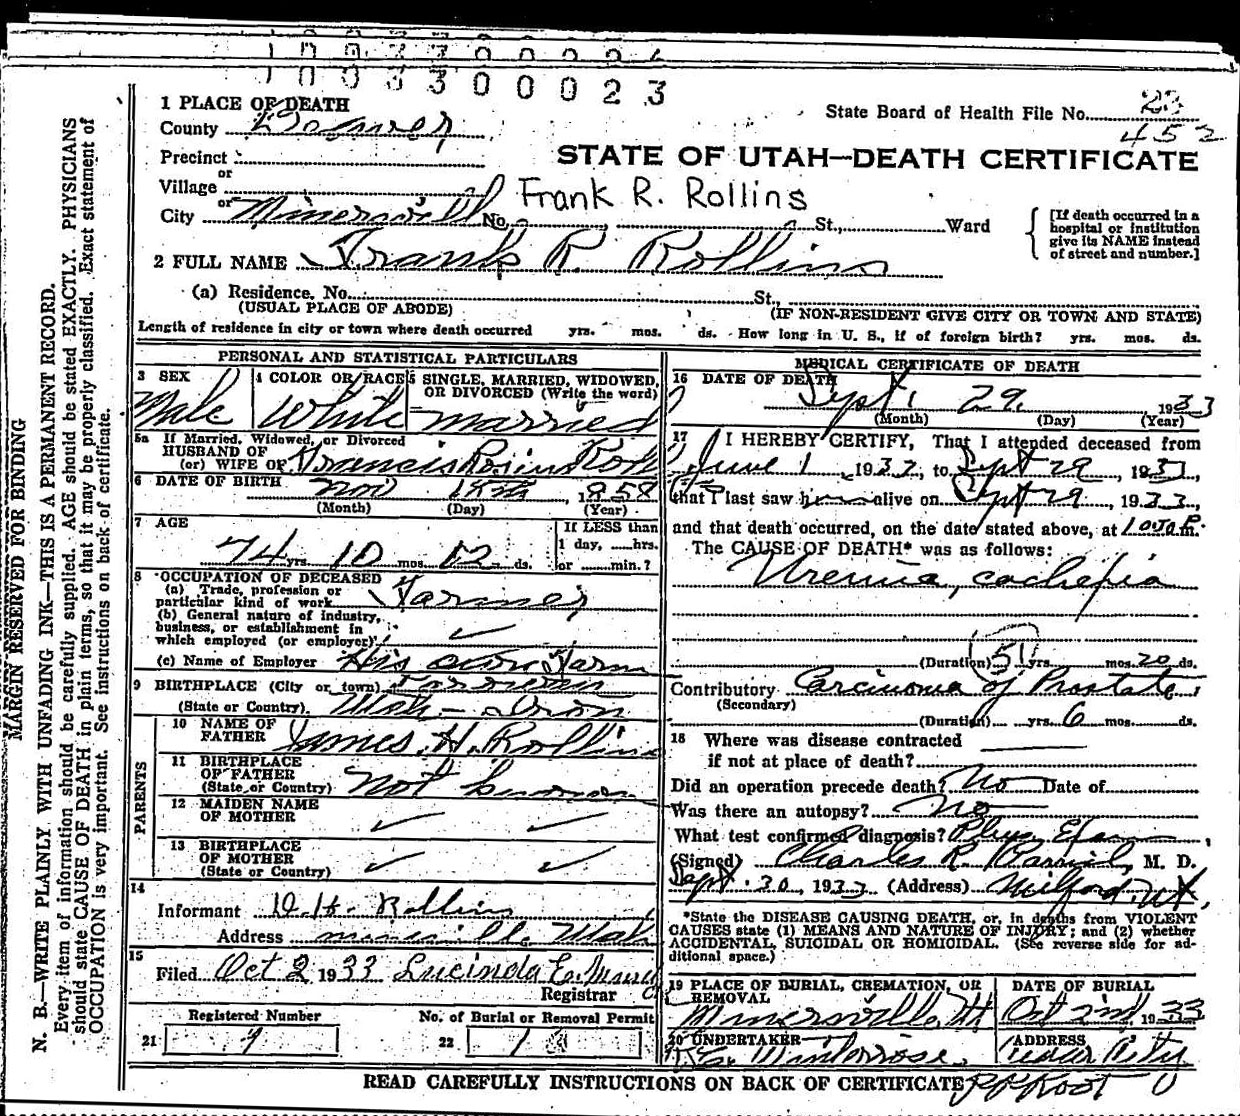 1 0 0 3 3 0 0 0 2 3
1 PLACE OF DEATH
State Board of Health File No. 23
452
County Beaver
Precinct
STATE OF UTAH—DEATH CERTIFICATE
or
Village
Frank R. Rollins
or
City Minersvill No. St., Ward
[If death occurred in a hospital or institution give its NAME instead of street and number.]
2 FULL NAME Frank R. Rollins
(a) Residence. No. St.,
(USUAL PLACE OF ABODE) (IF NON-RESIDENT GIVE CITY OR TOWN AND STATE)
Length of residence in city or town where death occurred yrs. mos. ds. How long in U. S., if of foreign birth? yrs. mos. ds.
PERSONAL AND STATISTICAL PARTICULARS
3 SEX 4 COLOR OR RACE 5 SINGLE, MARRIED, WIDOWED, OR DIVORCED (Write the word)
Male White married
5a If Married, Widowed, or Divorced
HUSBAND OF
(or) WIFE OF Francis
6 DATE OF BIRTH Nov 18th, 1858
(Month) (Day) (Year)
7 AGE If LESS than
1 day, hrs.
74 yrs 10 mos. 12 ds. or min.?
8 OCCUPATION OF DECEASED
(a) Trade, profession or
particular kind of work Farmer
(b) General nature of industry,
business, or establishment in
which employed (or employer) ✓
(c) Name of Employer His own Farm
9 BIRTHPLACE (City or town)
(State or Country). Utah
PARENTS
10 NAME OF
FATHER James H. Rollins
11 BIRTHPLACE
OF FATHER
(State or Country) Not known
12 MAIDEN NAME
OF MOTHER ✓ ✓
13 BIRTHPLACE
OF MOTHER
(State or Country) ✓ ✓
14
Informant Rollins
Address Utah
15
Filed Oct 2 1933 Lucinda E.
Registrar
Registered Number No. of Burial or Removal Permit
21 9 22 1
MEDICAL CERTIFICATE OF DEATH
16 DATE OF DEATH
Sept. 29. 1933
(Month) (Day) (Year)
17 I HEREBY CERTIFY, That I attended deceased from
June 1, 1932, to Sept 29, 193
that I last saw h alive on Sept 29, 1933,
and that death occurred, on the date stated above, at m.
The CAUSE OF DEATH* was as follows:
Uremia, cachexia
(Duration) yrs. mos. 20 ds.
Contributory Carcinoma of Prostate
(Secondary)
(Duration) yrs. 6 mos. ds.
18 Where was disease contracted
if not at place of death?
Did an operation precede death? No Date of
Was there an autopsy? No
What test confirmed diagnosis? Phys Exam
(Signed) Charles R. , M. D.
Sept. 30, 1933 (Address) Milford, Ut
*State the DISEASE CAUSING DEATH, or, in deaths from VIOLENT
CAUSES state (1) MEANS AND NATURE OF INJURY; and (2) whether
ACCIDENTAL, SUICIDAL OR HOMICIDAL. (See reverse side for ad-
ditional space.)
19 PLACE OF BURIAL, CREMATION, OR REMOVAL DATE OF BURIAL
Minersville, Ut Oct 2nd, 1933
20 UNDERTAKER ADDRESS
Cedar City
READ CAREFULLY INSTRUCTIONS ON BACK OF CERTIFICATE
MARGIN RESERVED FOR BINDING
N. B.—WRITE PLAINLY WITH UNFADING INK—THIS IS A PERMANENT RECORD.
Every item of information should be carefully supplied. AGE should be stated EXACTLY. PHYSICIANS
should state CAUSE OF DEATH in plain terms, so that it may be properly classified. Exact statement of
OCCUPATION is very important. See instructions on back of certificate.